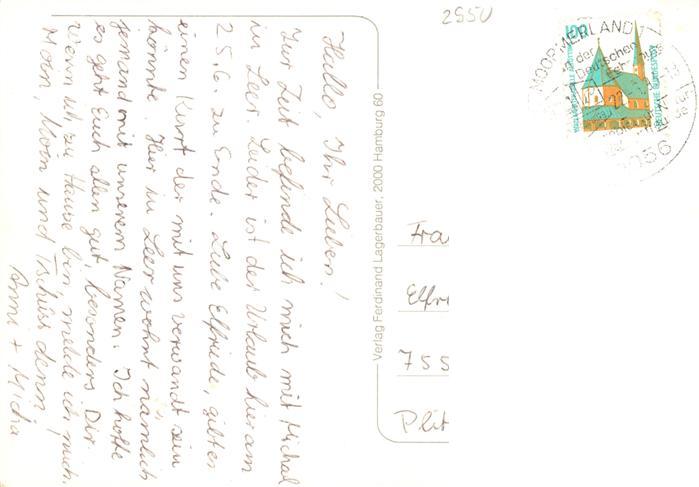 2950
Hallo, Ihr Lieben!
Zur Zeit befinde ich mich mit Michal
in Leer. Leider ist der Urlaub hier am
25.6. zu Ende. Liebe Elfriede, gibt es
einen Kurt der mit uns verwandt sein
könnte. Hier in Leer wohnt nämlich
jemand mit unserem Namen. Ich hoffe
es geht Euch allen gut, besonders Dir.
Wenn ich zu Hause bin melde ich mich.
Moin, Moin und Tschüss denn!
Anni + Micha
Verlag Ferdinand Lagerbauer, 2000 Hamburg 60
MOORMERLAND
der
Deutschen
DEUTSCHE BUNDESPOST
Fra
Elfri
755
Plit